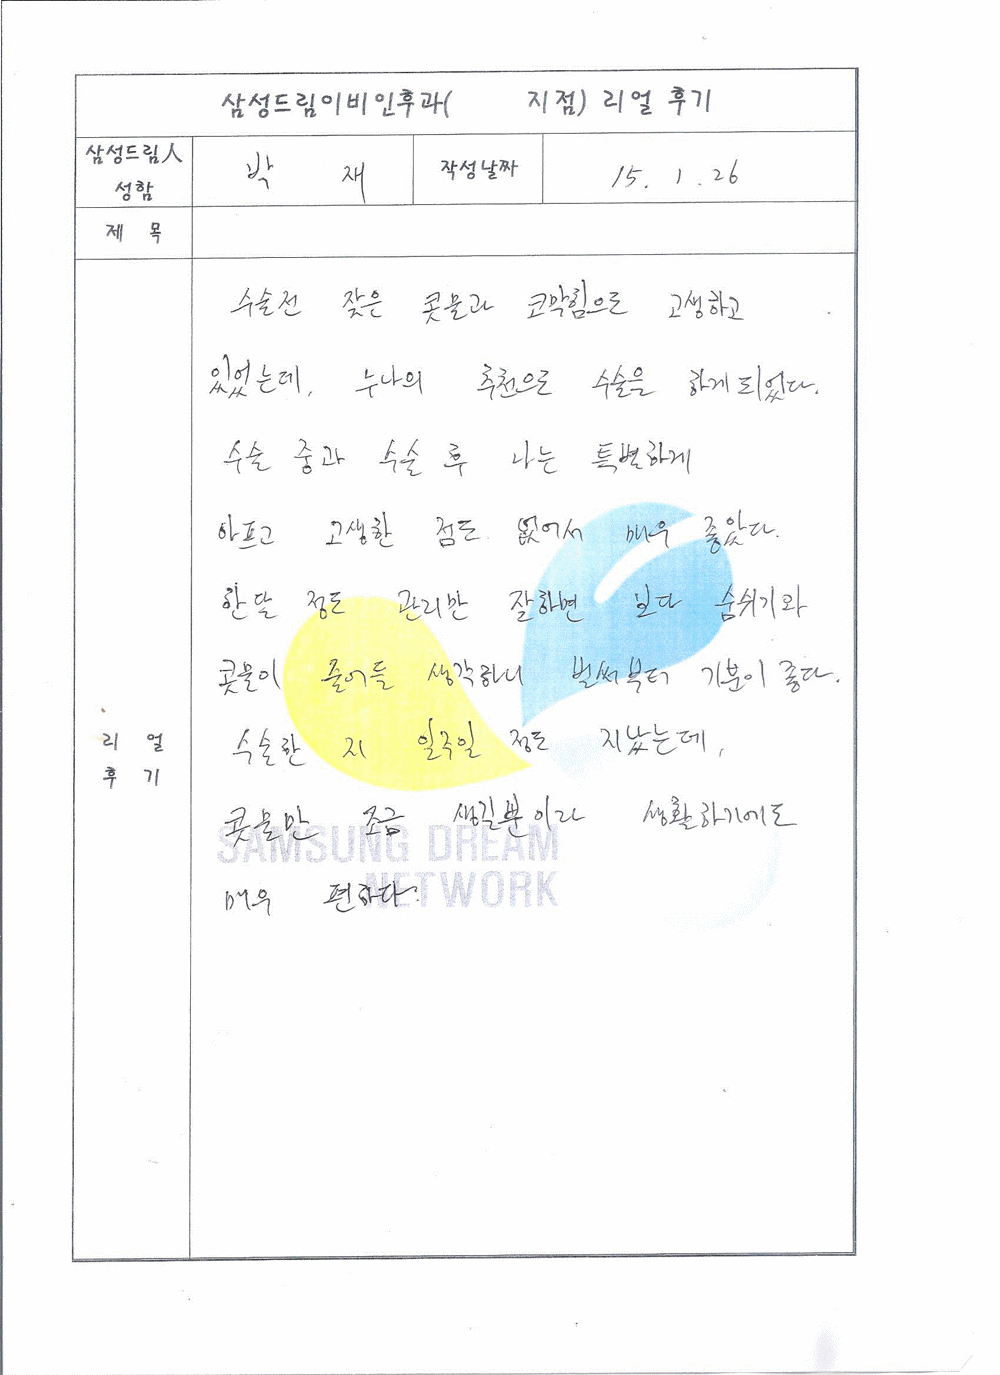 삼성드림이비인후과(      지점) 리얼 후기
삼성드림人
성함
박 재
작성날짜
15. 1. 26
제 목
리 얼
후 기
수술전 잦은 콧물과 코막힘으로 고생하고
있었는데, 누나의 추천으로 수술을 하게 되었다.
수술 중과 수술 후 나는 특별하게
아프고 고생한 점도 없어서 매우 좋았다.
한달 정도 관리만 잘하면 보다 숨쉬기와
콧물이 줄어들 생각하니 벌써부터 기분이 좋다.
수술한 지 일주일 정도 지났는데,
콧물만 조금 생길뿐이라 생활하기에도
매우 편하다.
SAMSUNG DREAM
NETWORK